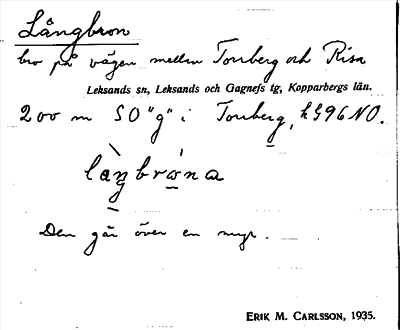 Långbron
bro på vägen mellan Torrberg och Risa
Leksands sn, Leksands och Gagnefs tg, Kopparbergs län.
200 m SO "g" i Torrberg, h G96NO.
làŋgbrǿna
Den går över en myr.
ERIK M. CARLSSON, 1935.